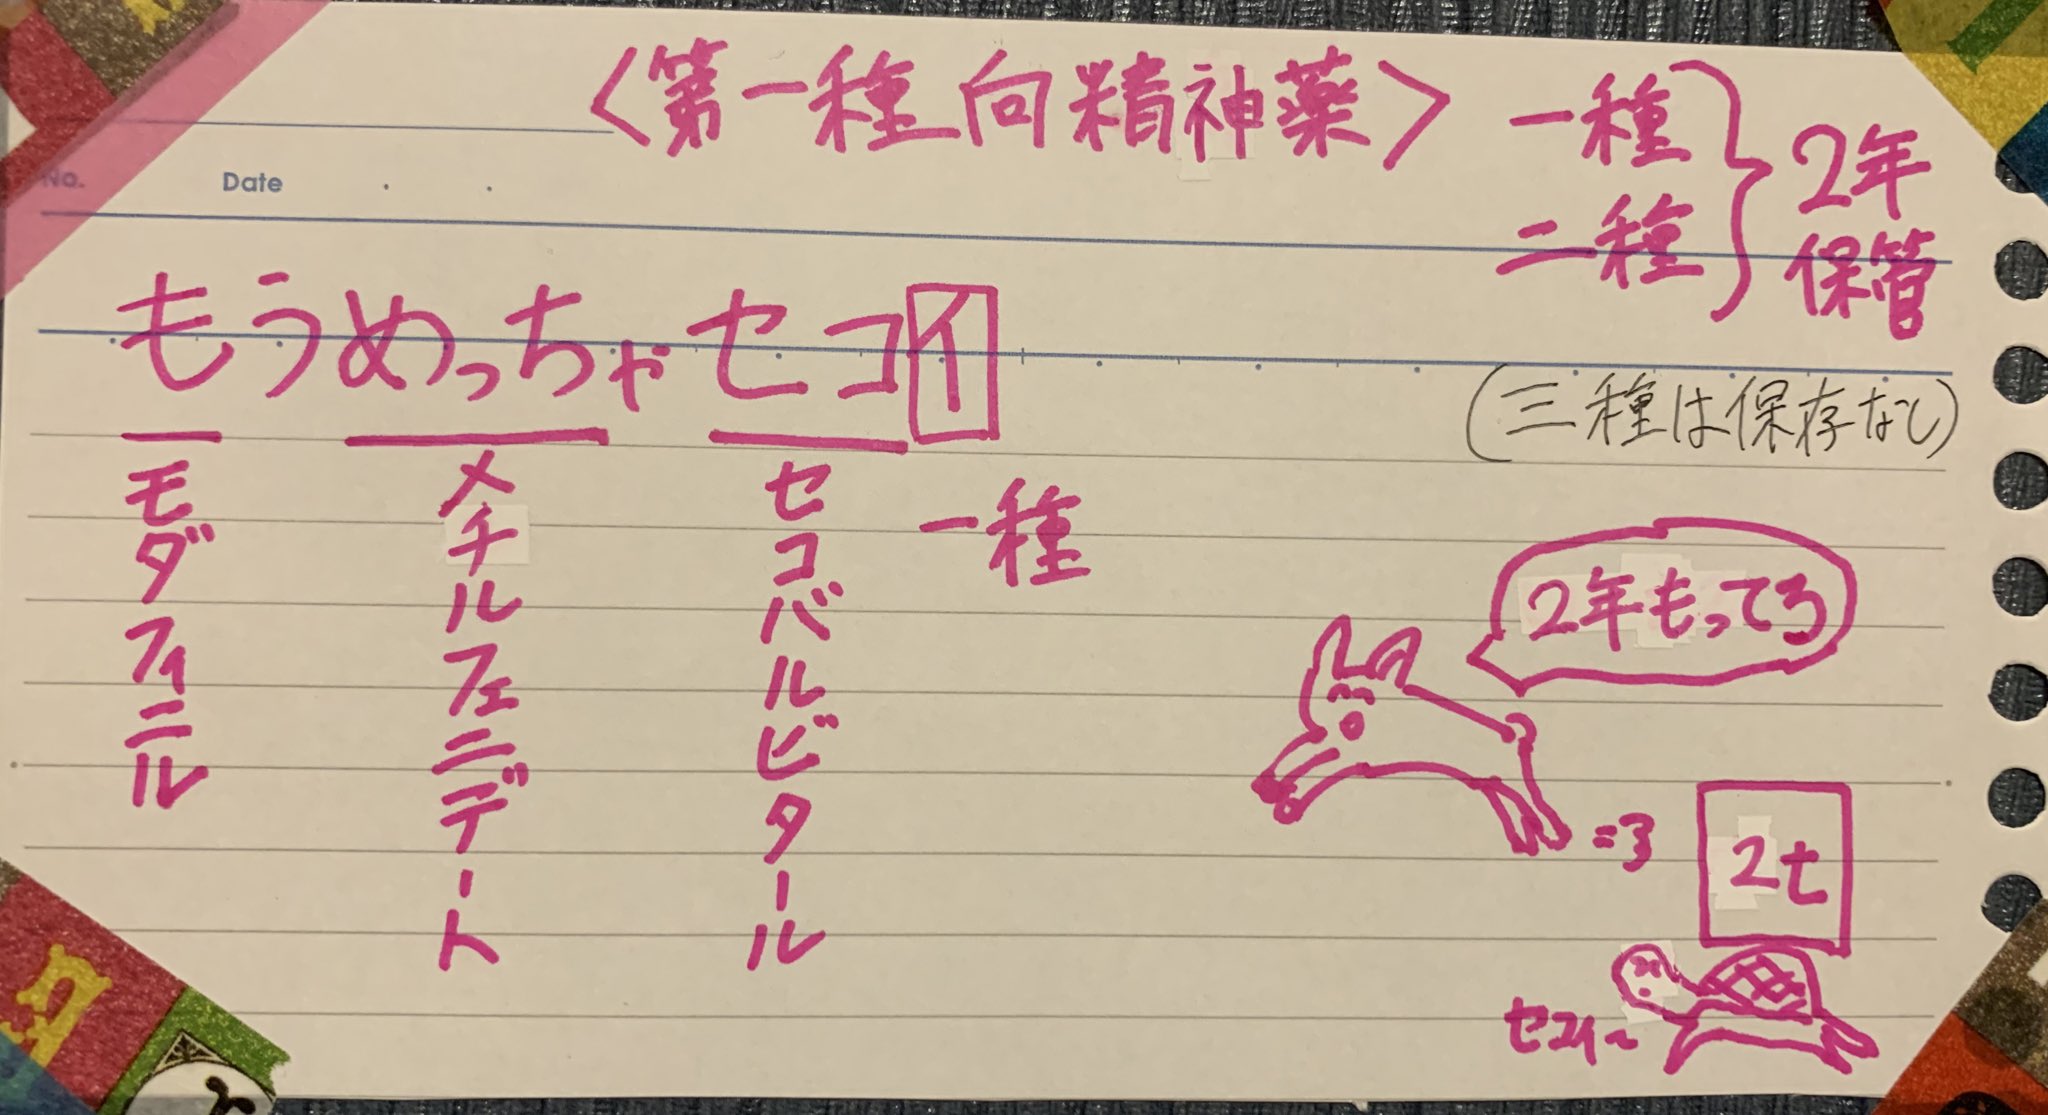 〈第一種向精神薬〉
一種
二種
2年
保管
No.
Date
もうめっちゃセコイ
(三種は保存なし)
モダフィニル
メチルフェニデート
セコバルビタール
一種
2年もってろ
2t
セコイ~